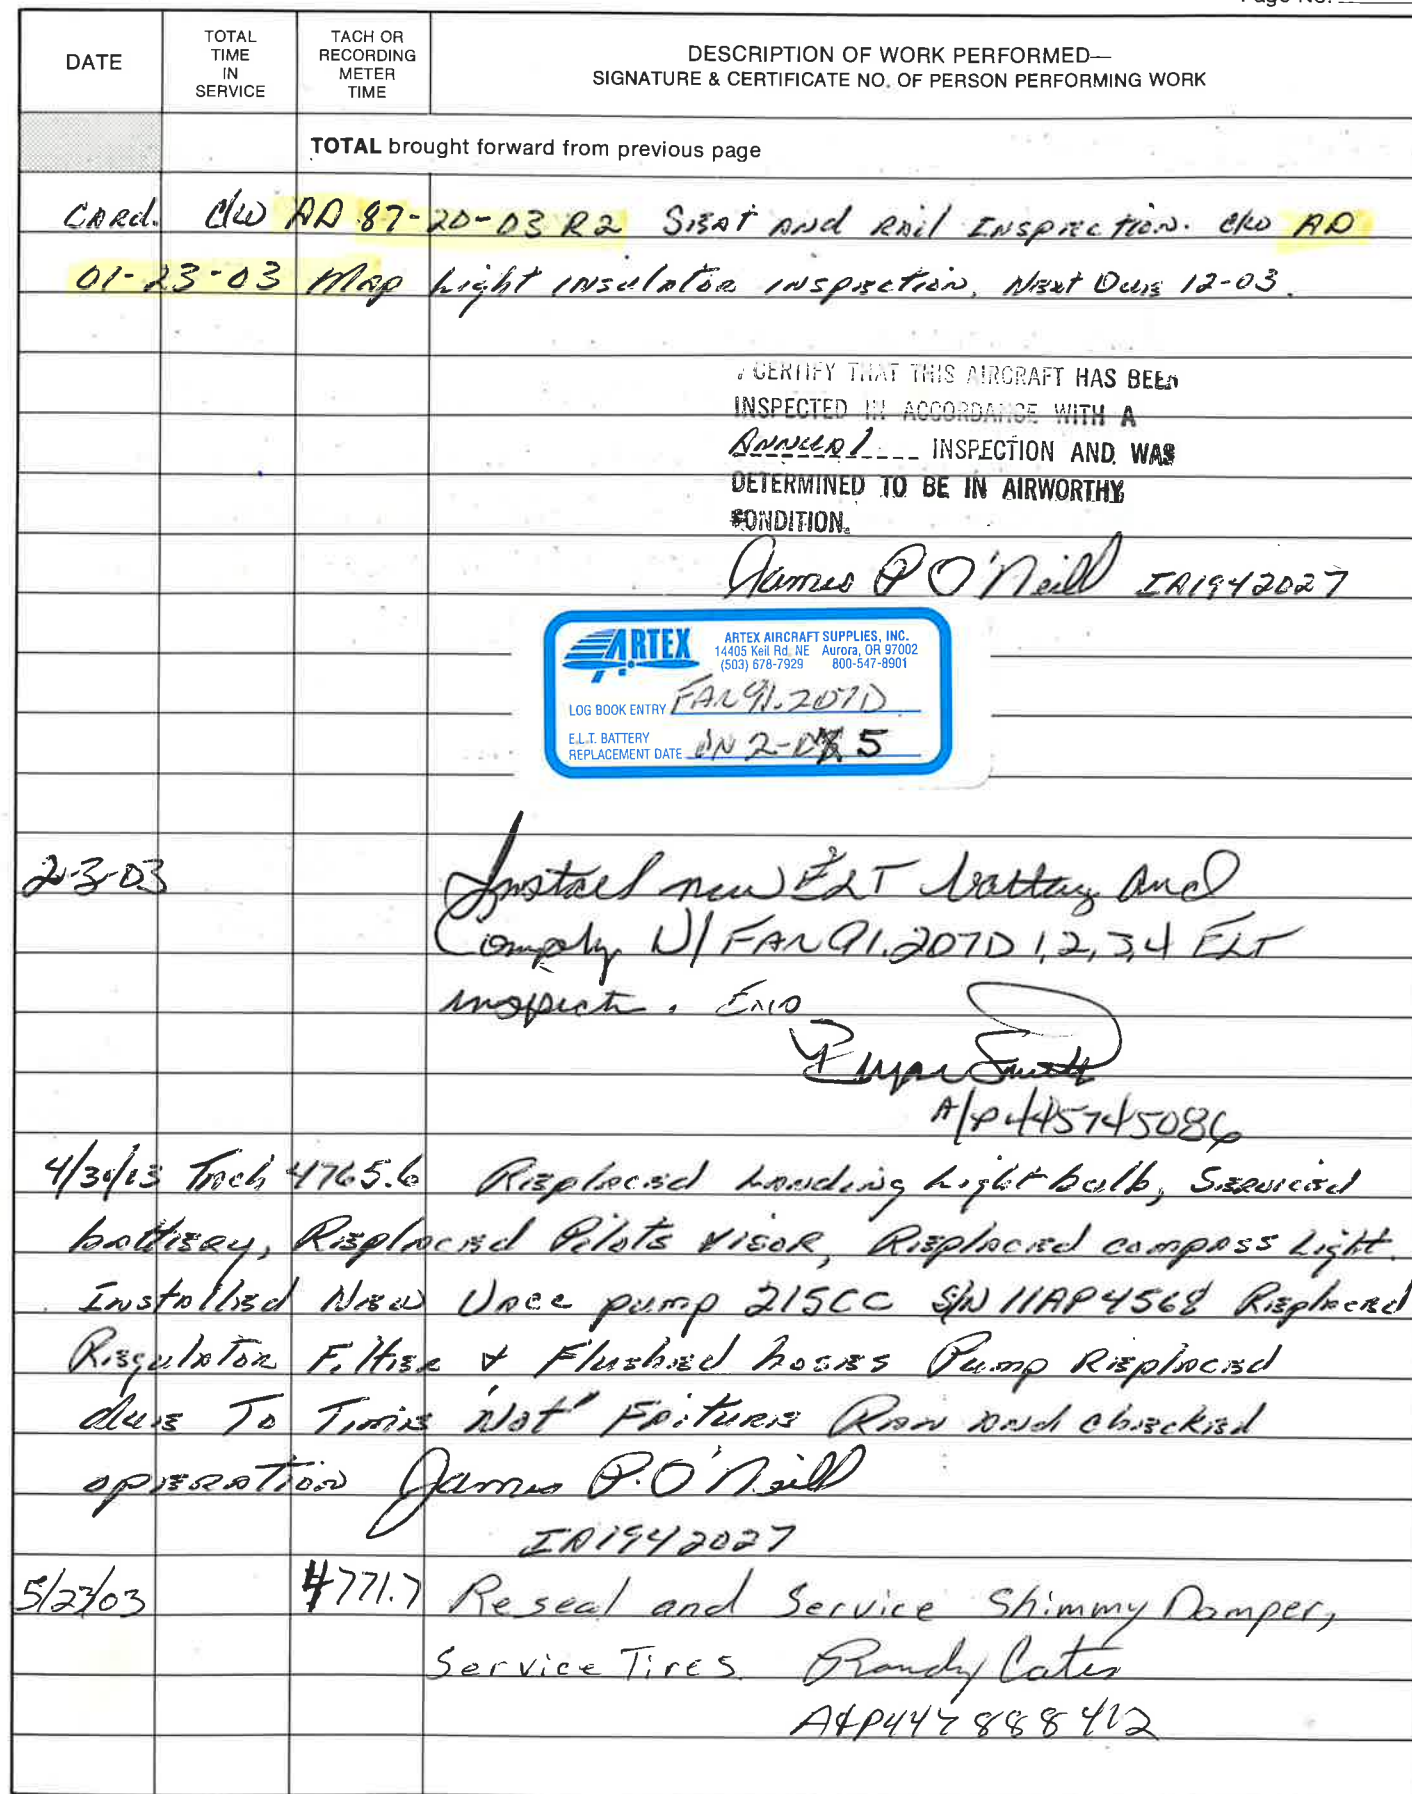 Page No.
DATE
TOTAL TIME IN SERVICE
TACH OR RECORDING METER TIME
DESCRIPTION OF WORK PERFORMED—
SIGNATURE & CERTIFICATE NO. OF PERSON PERFORMING WORK
TOTAL brought forward from previous page
Card. C/W AD 87-20-03 R2 Seat and Rail Inspection. C/W AD
01-23-03 Map Light insulator inspection. Next Due 12-03.
I CERTIFY THAT THIS AIRCRAFT HAS BEEN
INSPECTED IN ACCORDANCE WITH A
Annual INSPECTION AND WAS
DETERMINED TO BE IN AIRWORTHY
CONDITION.
James P O'Neill IA1942027
ARTEX
ARTEX AIRCRAFT SUPPLIES, INC.
14405 Keil Rd. NE Aurora, OR 97002
(503) 678-7929 800-547-8901
LOG BOOK ENTRY FAR 91.207D
E.L.T. BATTERY
REPLACEMENT DATE 2-0 5
2-3-03 Install new ELT battery and
Comply W/ FAR 91.207D 1,2,3,4 ELT
inspect. End
Smith
A/P 445745086
4/30/03 Tach 4765.6 Replaced Landing Light bulb, Serviced
battery, Replaced Pilots visor, Replaced compass Light.
Installed New Vacc pump 215CC S/N 11AP4568 Replaced
Regulator Filter & Flushed hoses Pump Replaced
due To Time "Not" Faiture Ran and checked
operation James P. O'Neill
IA1942027
5/23/03 4771.7 Reseal and Service Shimmy Damper,
Service Tires Randy Cates
A&P447888412